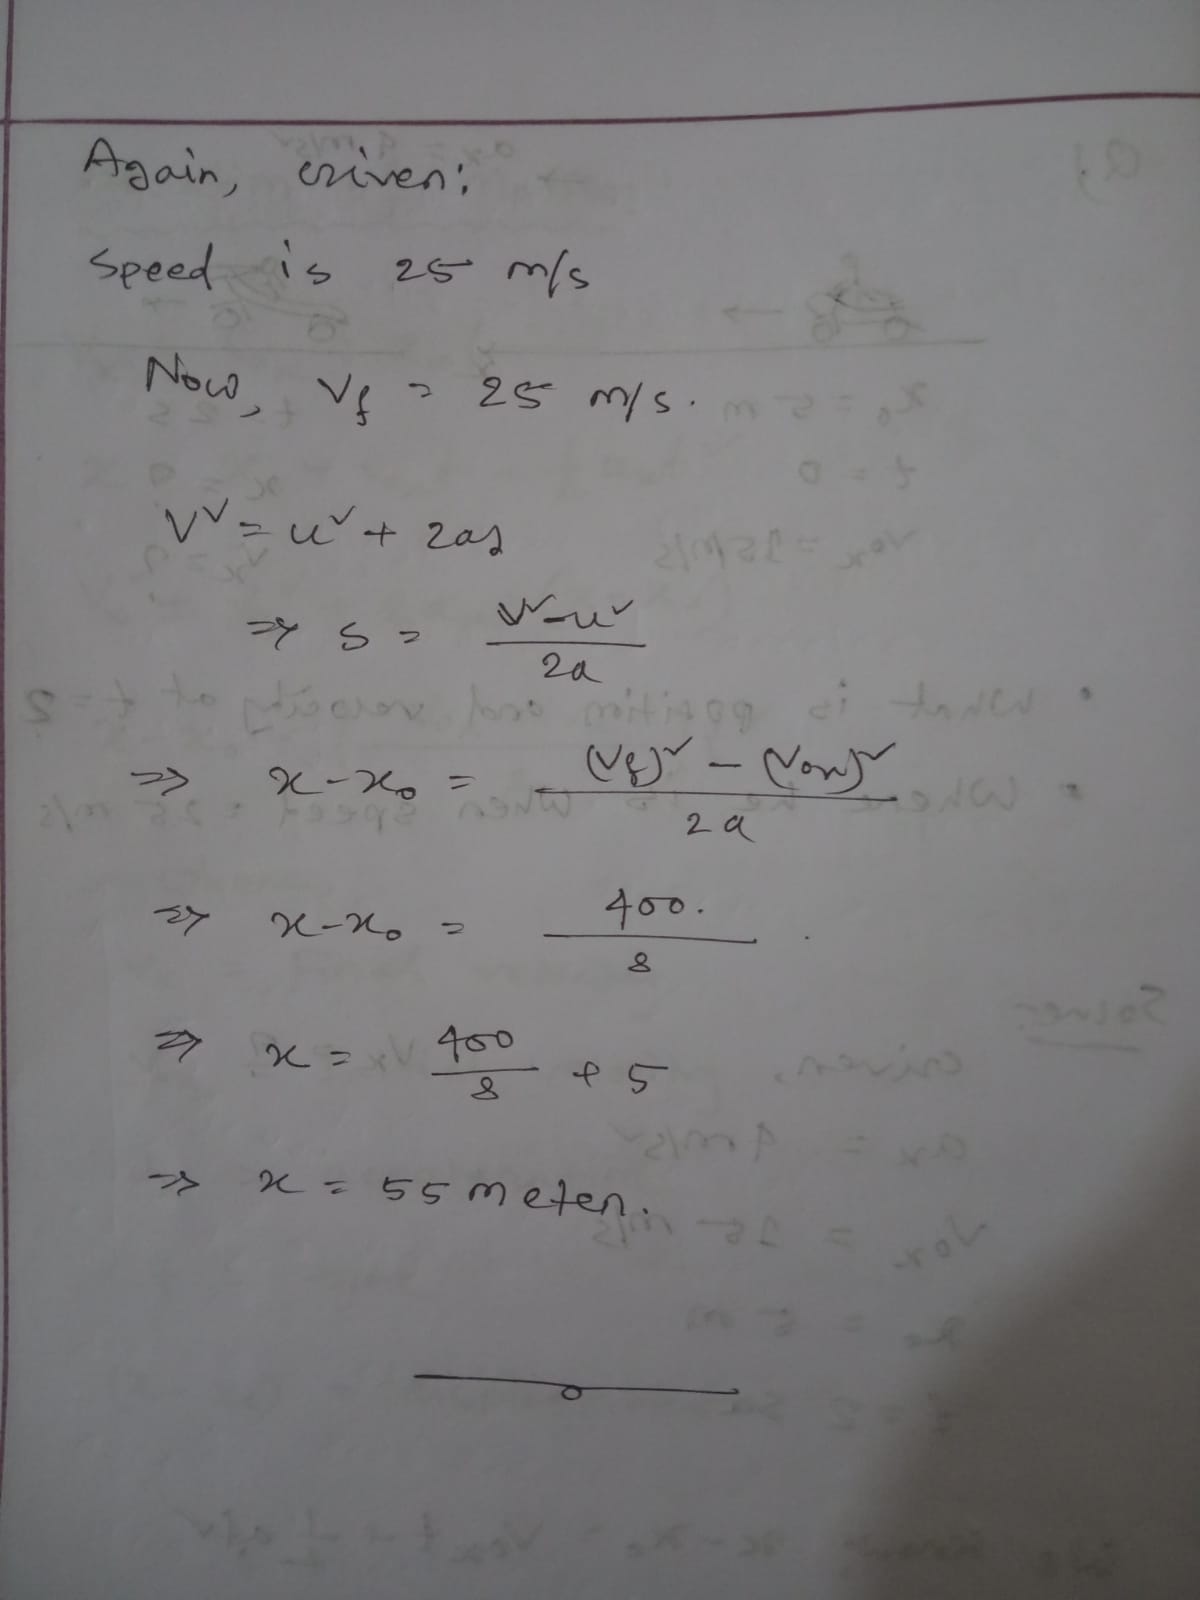 Again, Given:
Speed is 25 m/s
Now, V_f = 25 m/s.
V² = u² + 2as
⇒ s = (V² - u²) / 2a
⇒ x - x₀ = ((V_f)² - (V₀ₓ)²) / 2a
⇒ x - x₀ = 400. / 8
⇒ x = 400 / 8 + 5
⇒ x = 55 meter.